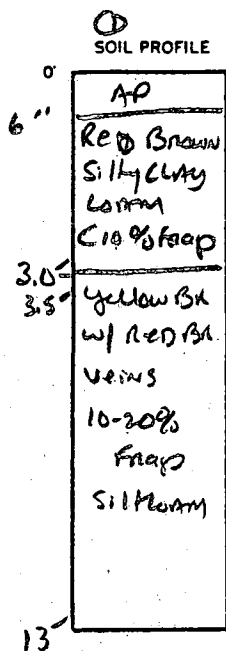 ①
SOIL PROFILE
0'
A-P
6"
Red Brown
Silty Clay
Loam
<10% Frag
3.0'
3.5'
Yellow BR
w/ Red BR
veins
10-20%
Frag
Silt Loam
13'